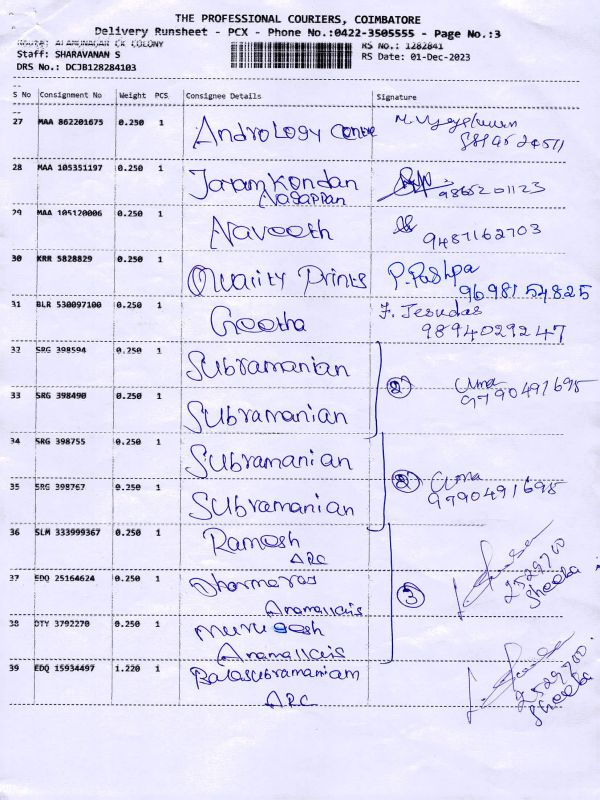 THE PROFESSIONAL COURIERS, COIMBATORE
Delivery Runsheet - PCX - Phone No.:0422-3505555 - Page No.:3
COLONY
Staff: SHARAVANAN S
RS No.: 1282841
DRS No.: DCJB128284103
RS Date: 01-Dec-2023
S No Consignment No Weight PCS Consignee Details Signature
27 MAA 862201675 0.250 1 Andrology Centre
28 MAA 105351197 0.250 1 Jaram Kondan 9865201123
Nagappan
29 MAA 105120006 0.250 1 Naveeth 9487162703
30 KRR 5828829 0.250 1 Quality Prints P. Pushpa
9698154825
31 BLR 530097100 0.250 1 Geetha F. Jesudas
9894029247
32 SRG 398594 0.250 1 Subramanian
2 Uma
9790491695
33 SRG 398490 0.250 1 Subramanian
34 SRG 398755 0.250 1 Subramanian
2 Uma
9790491695
35 SRG 398767 0.250 1 Subramanian
36 SLM 333999367 0.250 1 Ramesh
ARC
37 EDQ 25164624 0.250 1 Dharmaraj 3 2529700
Anamallais Sheeba
38 OTY 3792270 0.250 1 Murugesh
Anamallais
39 EDQ 15934497 1.220 1 Balasubramaniam 2529700
ARC Sheeba